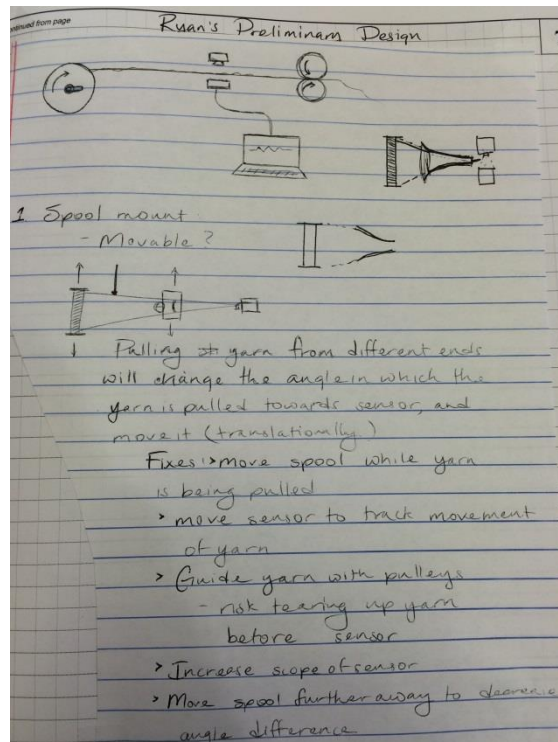 continued from page
Ryan's Preliminary Design
1. Spool mount
- Movable?
Pulling yarn from different ends
will change the angle in which the
yarn is pulled towards sensor, and
move it (translationally)
Fixes: > move spool while yarn
is being pulled
> move sensor to track movement
of yarn
> Guide yarn with pulleys
- risk tearing up yarn
before sensor
> Increase scope of sensor
> Move spool further away to decrease
angle difference